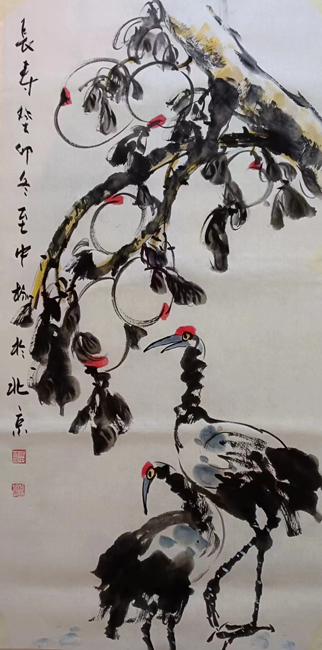 長寿癸卯冬至中於北京